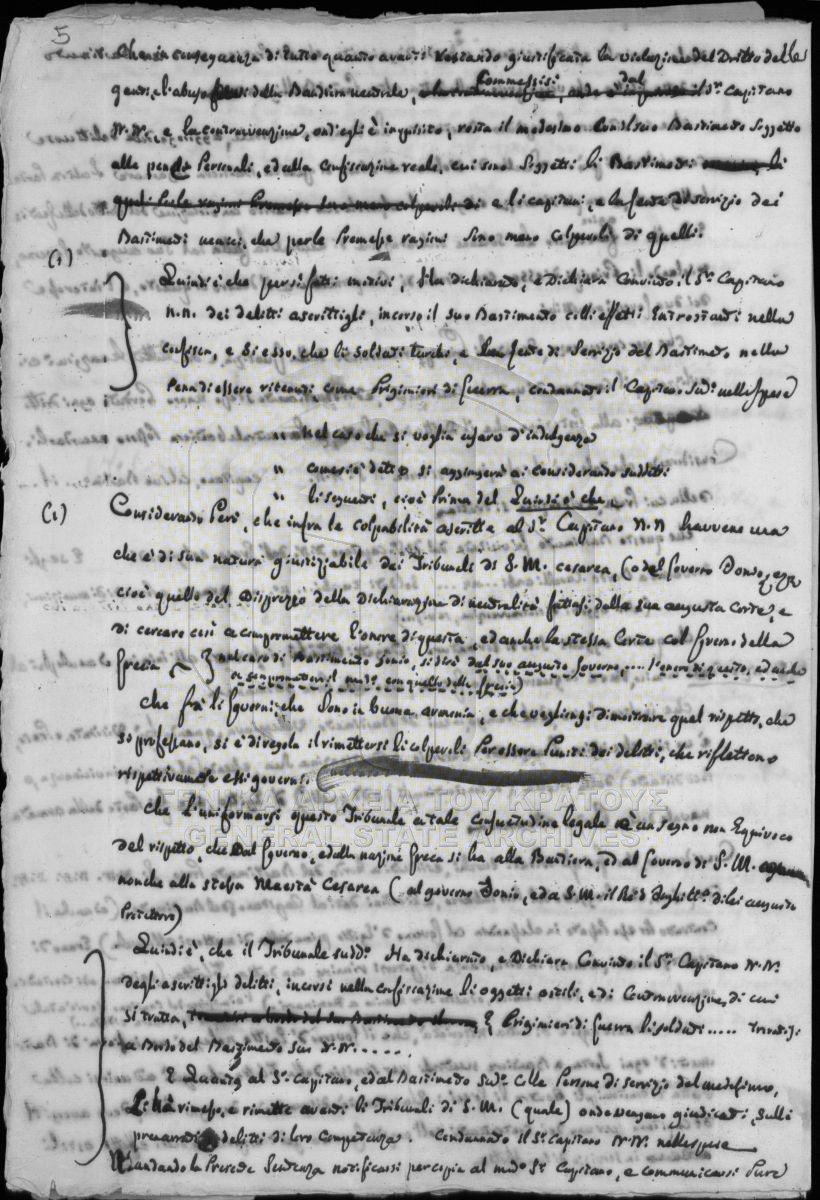 5
Che in conseguenza di tutto quanto avanti restando giustificata la violazione del Dritto delle
genti, l'abuso della Bandiera neutrale, Commessisi dal il Sr. Capitano
N.N. e la contravvenzione, ond'egli è inquisito, resta il medesimo Bastimento Soggetto
alle pene Personali, ed alla confiscazione reale, cui sono Soggetti li Bastimenti
e li capitani, e la Gente di Servizio dei
Bastimenti che per le Premesse ragioni Sono meno Colpevoli di quelli.
(1)
Quindi è che per sì fatti motivi, Ha dichiarato, e Dichiara Convinto il Sr. Capitano
N.N. dei delitti ascrittigli, incorso il suo Bastimento colli effetti Entrostanti nella
confisca, e sì esso, che li soldati turchi, e la Gente di Servizio del Bastimento nella
Pena di essere ritenuti come Prigionieri di Guerra, condannato il Capitano Sudº nelle Spese
" nel caso che si voglia usare d'indulgenza
" si aggiungerà ai considerando suddetti
" li seguenti, cioè Prima del Quindi è che
(1) Considerando Però, che infra le colpabilità ascritte al Sr. Capitano N.N. havvene una
che è di sua natura giustiziabile dai Tribunali di S.M. Cesarea, (o del Governo Ionio,
cioè quello del Disprezzo della Dichiarazione di neutralità fattasi dalla Sua augusta Corte, e
di cercare così a compromettere l'onore di questa, ed anche la stessa Corte col Governo della
Grecia nel caso di Bastimento Ionio, si dirà dal suo augusto Governo, .... l'onore di questo, ed anche
compromettere il medº con quello della Grecia)
Che fra li Governi, che Sono in buona armonia, e che vogliono dimostrare quel rispetto, che
si professano, si è di regola il rimettersi li colpevoli Per essere Puniti dei delitti, che riflettono
rispettivamente essi governi.
ΓΕΝΙΚΑ ΑΡΧΕΙΑ ΤΟΥ ΚΡΑΤΟΥΣ
GENERAL STATE ARCHIVES
Che l'uniformarsi questo Tribunale a tale Consuetudine legale è un segno non Equivoco
del rispetto, che Dal Governo, e dalla nazione Greca si ha alla Bandiera, ed al Governo di S.M.
nonche alla stessa Maestà Cesarea ( al governo Ionio, ed a S.M. il Re d'Inghilterra di lei augusto
Protettore)
Quindi è, che il Tribunale sudº Ha dichiarato, e Dichiara Convinto il Sr. Capitano N.N.
degli ascrittigli delitti, incorsi nella confiscazione li oggetti ostili, e di Contravvenzione, di cui
si tratta, E Prigionieri di Guerra li soldati .....
a Bordo del Bastimento N.N. .....
E Quanto al Sr. Capitano, ed al Bastimento Sudº colle Persone di servizio del medesimo,
Li ha rimesso, e rimette avanti li Tribunali di S.M. (quale) onde vengano giudicati, Sulli
prenarrati delitti di loro competenza. Condannato il Sr. Capitano N.N. nelle spese
Mandando la Presente Sentenza notificarsi per copia al medº Sr. Capitano, e communicarsi Pure